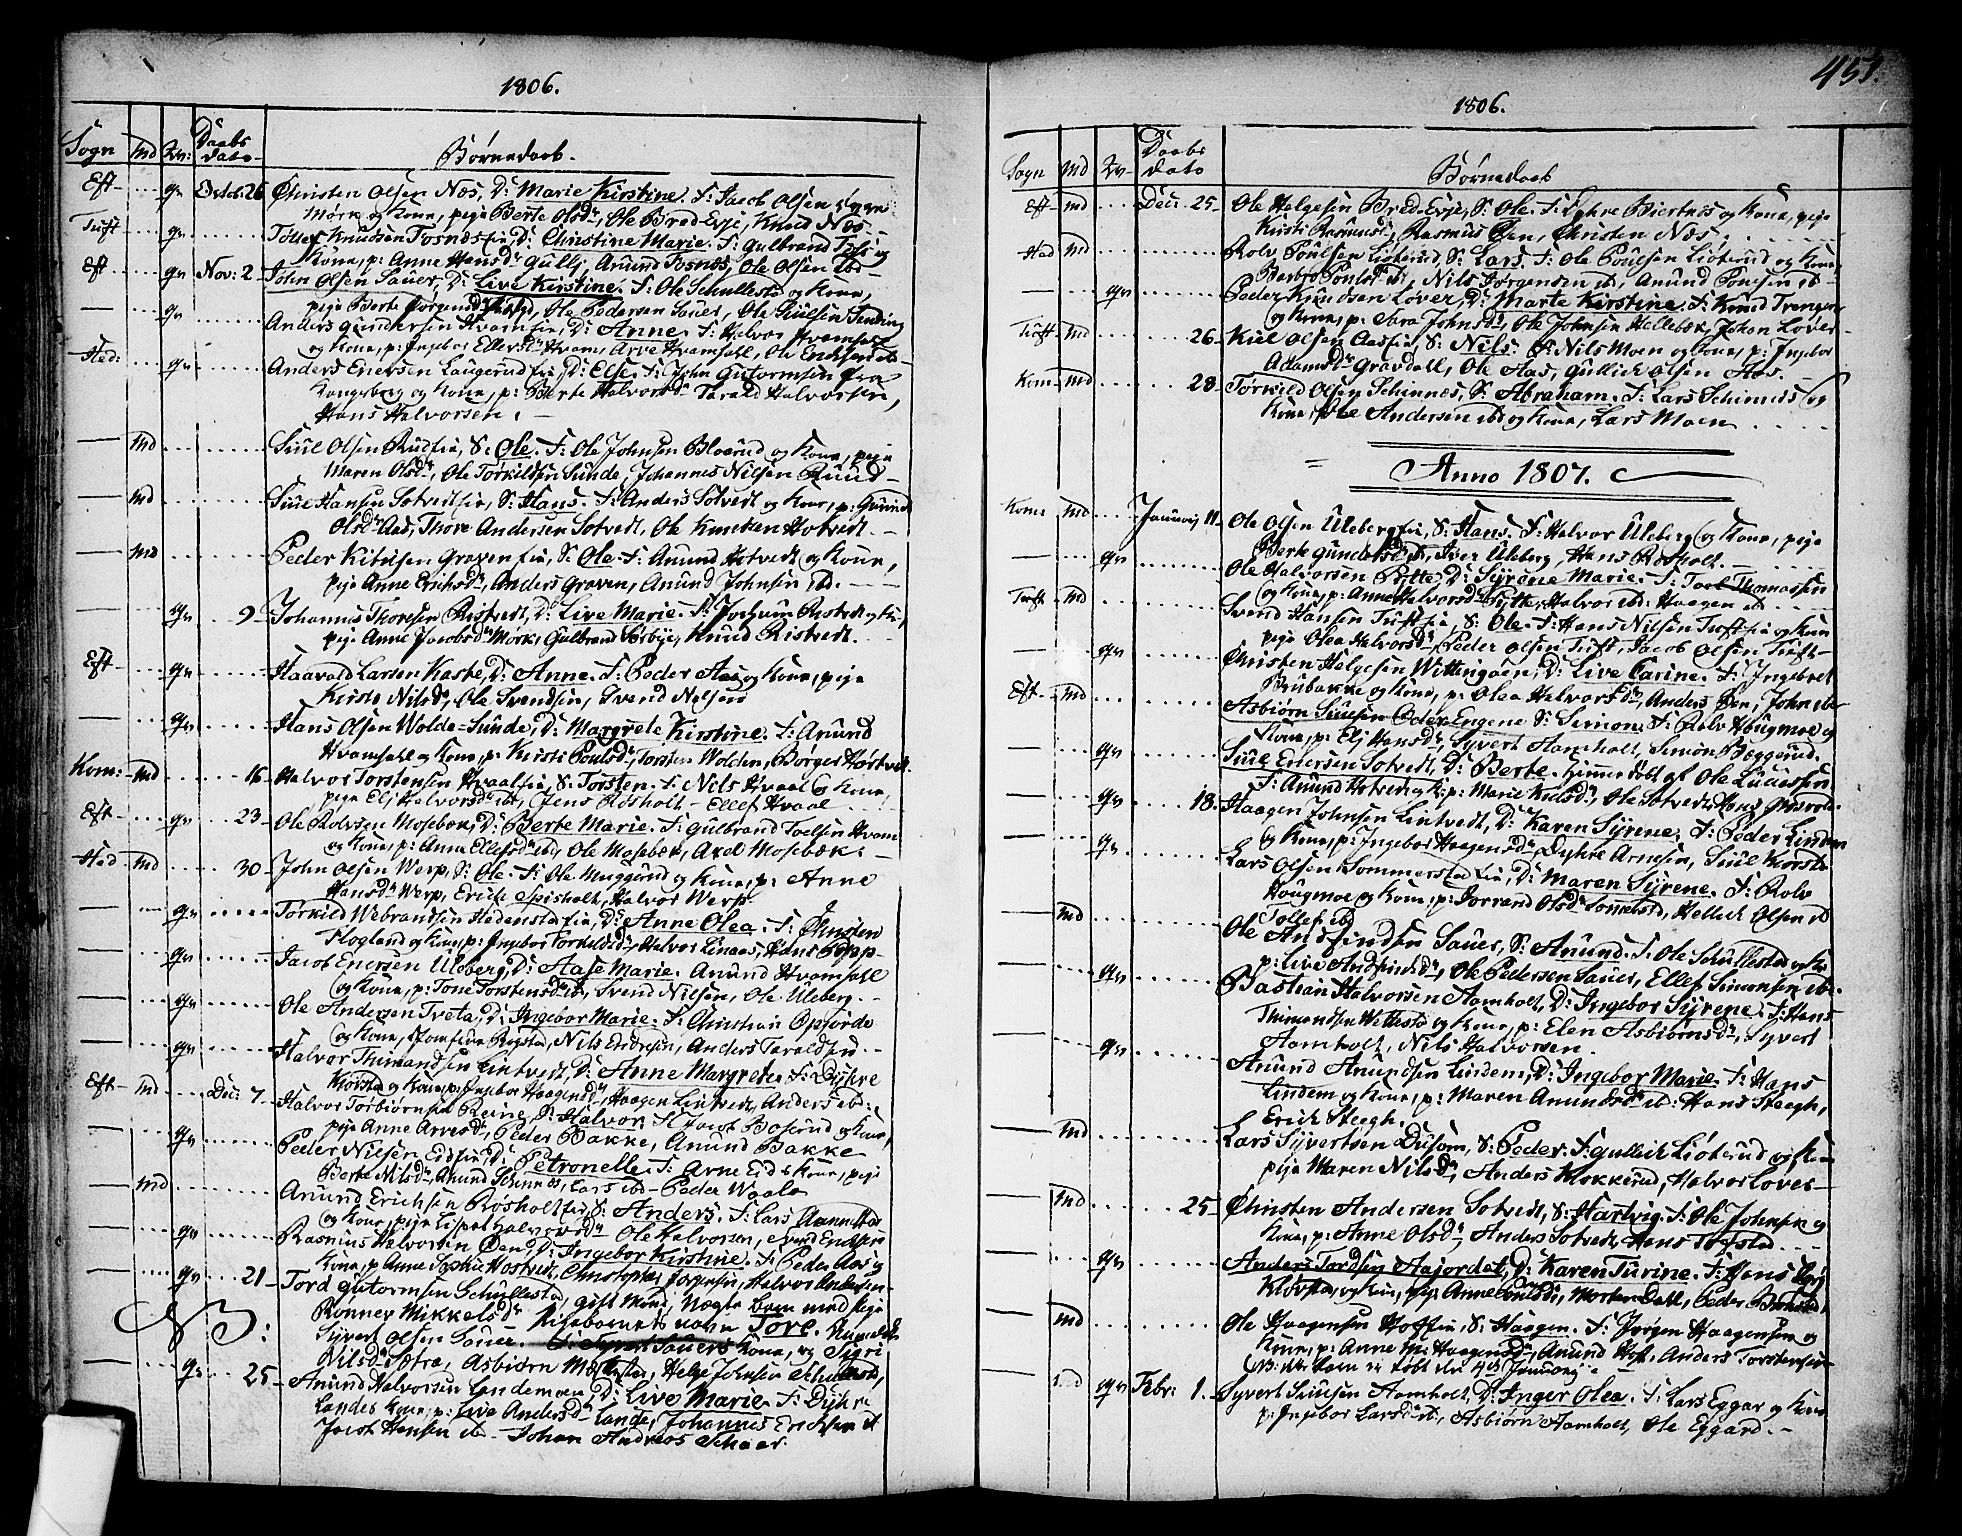 1806.
Sogn Md Qv: Daabs dato Børnedaab.
Eft qv Octob: 26 Christen Olsen Næs, D: Marie Kirstine. F: Jacob Olsen
Mørk og Kone, pige Berte Olsd:, Ole Bred Evje, Knud Næs
Tuft qv Tollef Knudsen Fosnæs fia, D: Christine Marie. F: Gulbrand og
Kone, p: Anne Hansd: Gullj, Amund Fosnæs, Ole Olsen ibd
Eft qv Nov: 2 John Olsen Sauer, D: Live Kirstine. F: Ole Schullestad og Kone,
pige Berte Jørgensd: Ole Pedersen Sauer, Ole Suulsen Sanding
qv Anders Gundersen Hvamfia, D: Anne. F: Halvor Hvamsall
og Kone, p: Ingebor Ellefsd: Hvam, Arve Hvamsall, Ole Endresen ibd
Hed: qv Anders Enersen Laugerud fia, D: Else. F: John Gutormsen fra
Kongsberg og Kone, p: Berte Halvorsd: Tarald Halvorsen,
Hans Halvorsen.
Md Suul Olsen Rud fia, S: Ole. F: Ole Johnsen Bloerud og Kone, pige
Maren Olsd:, Ole Torkildsen Sunde, Johannes Nilsen Ruud
Md Suul Hansen Sotvedt fia, S: Hans. F: Anders Sotvedt og Kone, p: Gunild
Olsd: Aas, Thore Andersen Sotvedt, Ole Knudsen Hotvedt
Md Peder Kittilsen Graven fia, S: Ole. F: Anund Hotvedt og Kone,
pige Anne Erichsd:, Anders Graven, Anund Johnsen ibd.
qv 9 Johannes Thoresen Ristvedt, D: Live Marie. F: Jochum Ristvedt og Kone,
pige Anne Jacobsd: Mørk, Gulbrand Sørbye, Knud Ristvedt.
Eft qv Haavald Larsen Kaste, D: Anne. F: Peder Aas og Kone, pige
Kirste Nilsd:, Ole Svendsen, Svend Nielsen
qv Hans Olsen Wolde-Sunde, D: Margrete Kirstine. F: Anund
Hvamsall og Kone, p: Kirsti Poulsd:, Torsten Wolden, Børger Hørtvedt
Kom: Md 16 Halvor Torstensen Hvaal fia, S: Torsten. F: Nils Hvaal og Kone,
pige Elj Halvorsd: ibd, Jens Røsholt - Ellef Hvaal
Eft qv 23 Ole Rolvsen Mosebæk, D: Berte Marie. F: Gulbrand Toelsen Hvam
og Kone, p: Anne Ellefsd: ibd, Ole Mosebæk, Axel Mosebæk.
Hed Md 30 John Olsen Werp, S: Ole. F: Ole Muggerud og Kone, p: Anne
Hansd: Werp, Erich Spisholt, Halvor Werp.
qv Torkild Webrandsen Hedenstad fia, D: Anne Olea. F: Christen
Flogland og Kone, p: Ingebor Torkildsd:, Halvor Linaas, Hans
qv Jacob Enersen Uleberg, D: Aase Marie. Anund Hvamsall
og Kone, p: Tone Torstensd: ibd, Svend Nilsen, Ole Uleberg.
qv Ole Andersen Tveta, D: Ingebor Marie. F: Christian Opjorde
og Kone, Jomfrue Rogstad, Nils Endresen, Anders Taraldsen
qv Halvor Thimandsen Lintvedt, D: Anne Margrete. F: Dyhre
Korstad og Kone, p: Ingebor Haagensd:, Haagen Lintvedt, Anders ibd:
Eft Md Dec: 7 Halvor Torbiørnsen Reine, S: Halvor. F: Jacob Boserud og Kone,
pige Anne Arvesd:, Peder Bakke, Anund Bakke
qv Peder Nilsen Eid fia, D: Petronelle. F: Arne Eid & Kone, pige
Berte Nilsd:, Anund Schinnes, Lars ibd - Peder Waale
Md Anund Erichsen Røsholt fia, S: Anders. F: Lars
og Kone, pige Lispet Halvorsd: Ole Halvorsen, Svend Endresen
qv Rasmus Halvorsen Øen, D: Ingebor Kirstine. F: Peder Aas og
Kone, p: Anne Sophie Hostvedt, Christopher Jørgensen, Halvor Andersen
qv 21 Tord Gutormsen Schullestad, gift Mand, Uægte Barn med pige
Ronnev Mikkelsd: Pigebarnets navn Tore.
NB: Syvert Olsen Sauer. F: Syvert Sauers Kone, og Sigri
Nilsd: Sætra, Asbiørn Helge Johnsen Schullestad,
qv 25 Anund Halvorsen Landemoen, D: Live Marie. F: Dyhre
Landes Kone, p: Live Andersd: Lande, Johannes Erichsen ibd
Jacob Hansen ibd - Johan Andreas Schaar.
451.
1806.
Sogn Md Qv Daabs dato Børnedaab
Eft Md Dec: 25 Ole Helgesen Bred Evje, S: Ole. F: Dyhre Biertnæs og Kone, pige
Kirsti Rasmusd:, Rasmus Øen, Christen Næs.
Hed Md Rolv Poulsen Lioterud, S: Lars. F: Ole Poulsen Lioterud og Kone,
Barbro Poulsd: ibd, Nils Jørgensen ibd, Anund Poulsen ibd
qv Peder Knudsen Lover, D: Marte Kirstine. F: Knud
og Kone, p: Sara Johnsd:, Ole Johnsen Hellebek, Johan Lover
Tuft Md 26 Kield Olsen Aas fia, S: Nils. F: Nils Moen og Kone, p: Ingebor
Adamsd: Gravdall, Ole Aas, Gullick Olsen Aas.
Kom Md 28 Torkild Olsen Schinnes, S: Abraham. F: Lars Schinnes og
Kone, Ole Andersen ibd og Kone, Lars Moen
Anno 1807.
Kom: Md Januarj 11 Ole Olsen Uleberg fia, S: Hans. F: Halvor Uleberg og Kone, pige
Berte Gundersd: ibd, Iver Uleberg, Hans Røsholt.
qv Ole Halvorsen Pytte, D: Syrene Marie. F: Toel Thomassen
og Kone, p: Anne Halvorsd: Pytte, Halvor ibd: Haagen ibd
Tuft Md Svend Hansen Tuft fia, S: Ole. F: Hans Nilsen Tuft fia og Kone
pige Olea Halvorsd:, Peder Olsen Tuft, Jacob Olsen Tuft
qv Christen Helgesen Wittingøen, D: Live Carine. F: Ingebret
Brubakke og Kone, p: Olea Halvorsd:, Anders Øen, John ibd
Eft Md Asbiørn Suulsen Oder Engene S: Simon. F: Rolv Hougmoe og
Kone, p: Elj Hansd:, Syvert Aamholt, Simon Beggerud.
qv Suul Enersen Sotvedt, D: Berte. hjemmedøbt af Ole
F: Anund Hotvedt og K: p: Marie Kieldsd:, Ole Sotvedt, Hans
qv 18 Haagen Johnsen Lintvedt, D: Karen Syrene. F: Peder Lindem
og Kone, p: Ingebor Haagensd:, Dyhre Arnesen, Suul Korstad
qv Lars Olsen Sommerstad fia, D: Maren Syrene. F: Rolv
Hougmoe og Kone, p: Jorrand Olsd: Sommerstad, Hellick Olsen ibd
Tollef ibd
Md Ole Andfindsen Sauer, S: Anund. F: Ole Schullestad og Ko:
p: Live Andfindsd:, Ole Pedersen Sauer, Ellef Simonsen ibd.
qv Bastian Halvorsen Aamholt, D: Ingebor Syrene. F: Hans
Thimandsen Wettestad og Kone, p: Elen Asbiørnsd:, Syvert
Aamholt, Nils Halvorsen.
qv Anund Anundsen Lindem, D: Ingebor Marie. F: Hans
Lindem og Kone, p: Maren Anundsd: ibd: Hans Steegh,
Erich Steegh.
Md Lars Syvertsen S: Peder. F: Gullick Lioterud og Kone
pige Maren Nilsd:, Anders Klokkerud, Halvor Lover
Md 25 Christen Andersen Sotvedt, S: Hartvig. F: Ole Johnsen og
Kone, p: Anne Olsd:, Anders Sotvedt, Hans
qv Anders Tordsen Aajordet, D: Karen Turine. F: Hans
og Kone, pige Anne Poulsd:, Morten Dall, Peder
Md Ole Haagensen Hoff fia, S: Haagen. F: Jørgen Haagensen og
Kone, p: Anne M: Haagensd:, Anund Hof, Anders Torstensen
(NB: dette Barn er døbt den 4de Januarj)
qv Febr: 1. Syvert Suulsen Aamholt, D: Inger Olea. F: Lars Eggar og Kone
p: Ingebor Larsd: ibd, Asbiørn Aamholt, Ole Eggard.